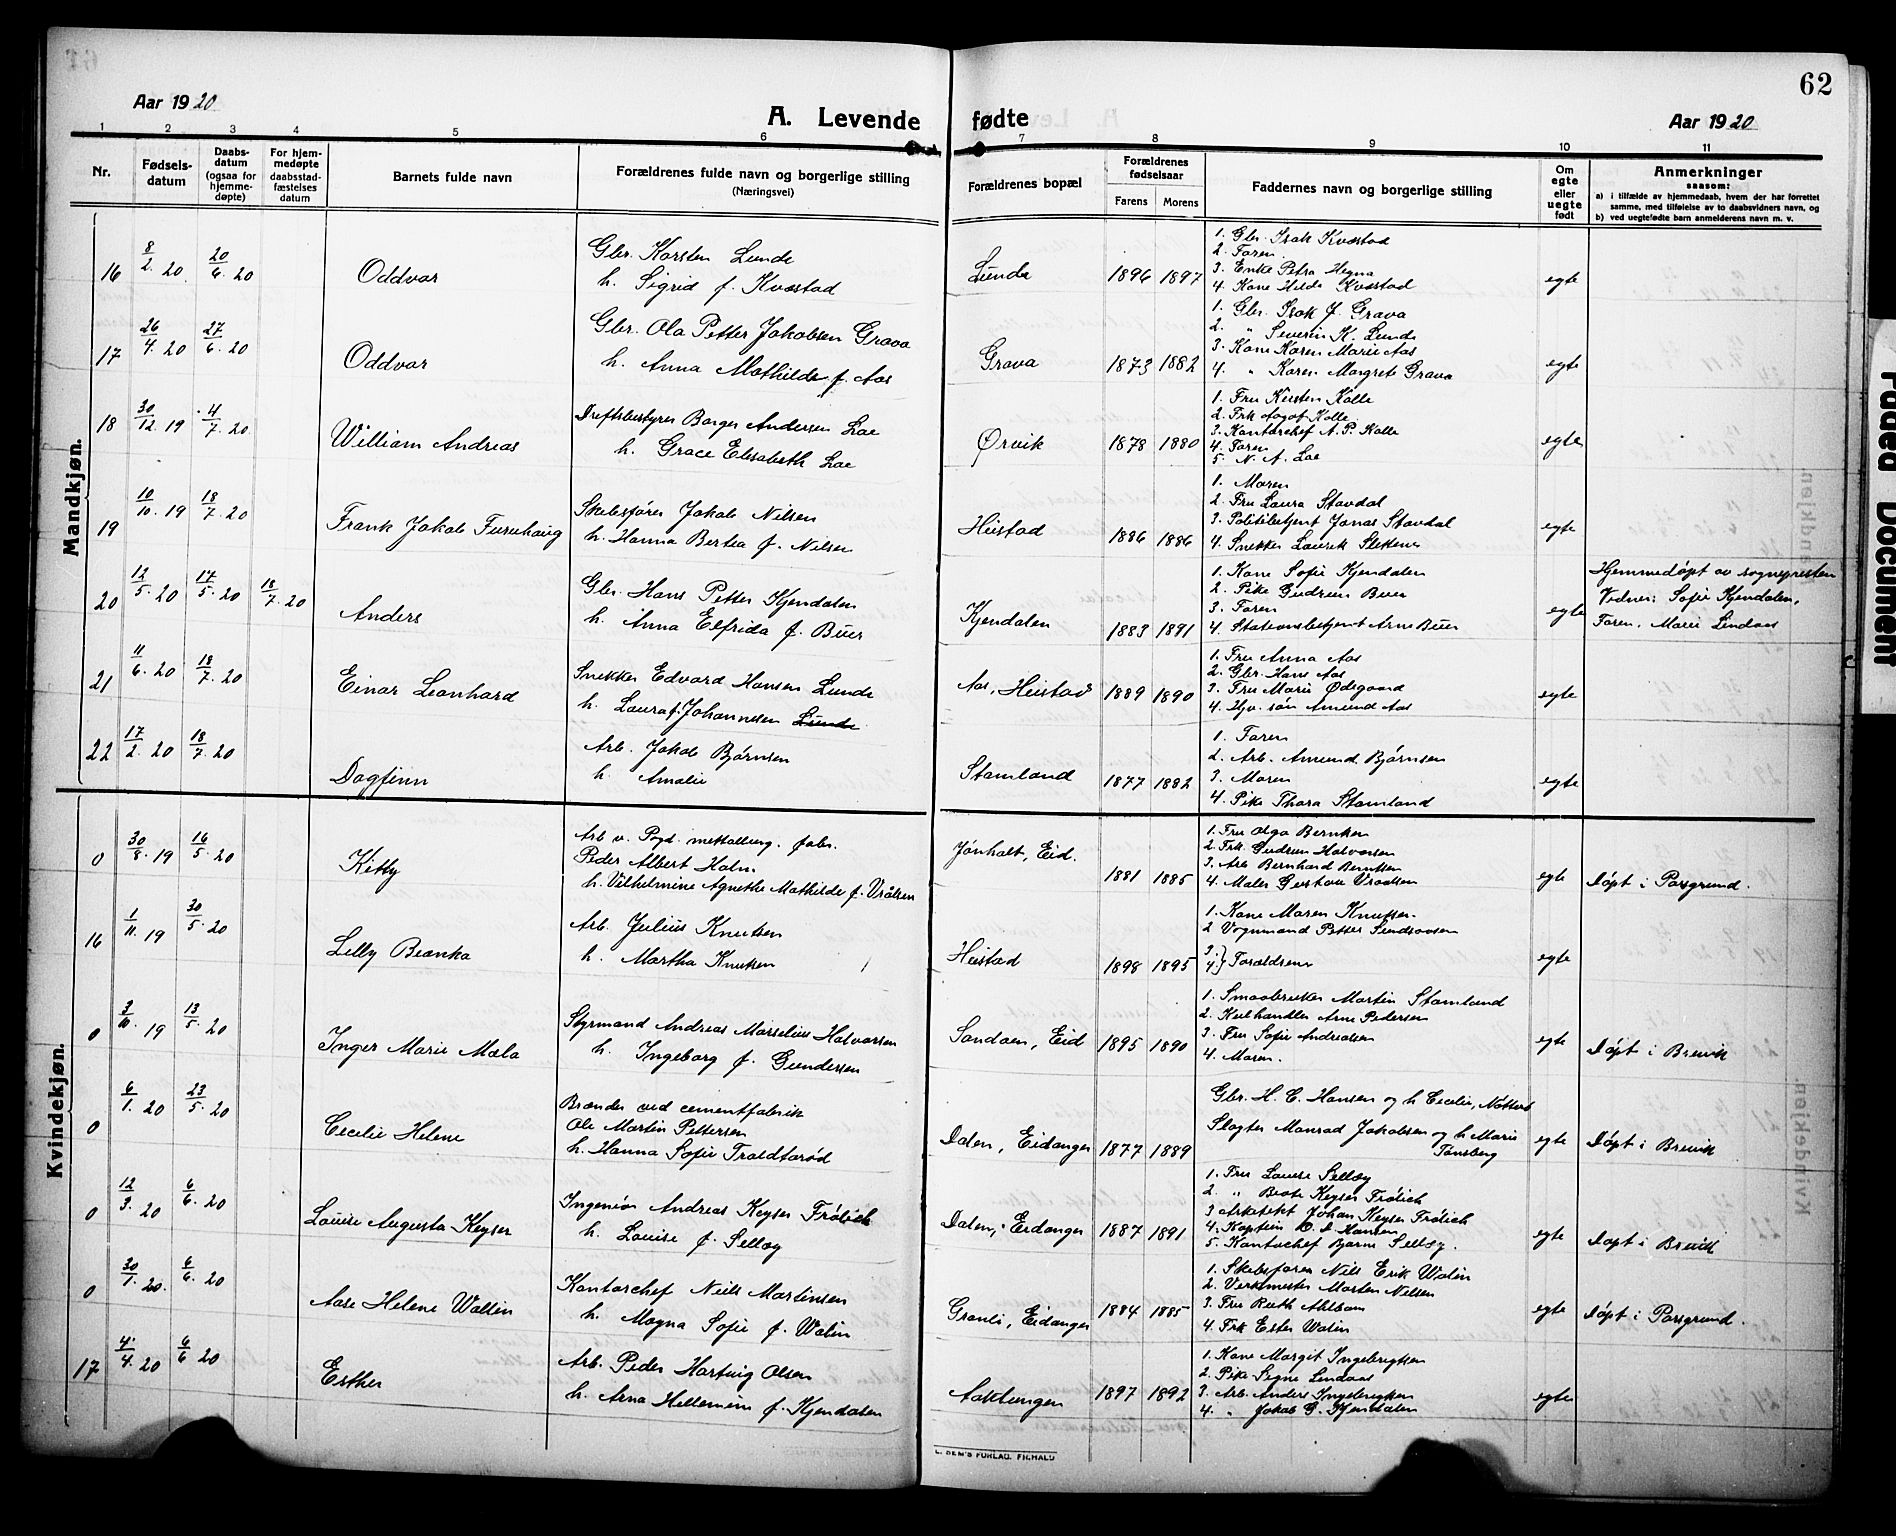 62
Aar 1920
A. Levende fødte
Aar 1920
1 2 3 4 5 6 7 8 9 10 11
Nr.
Fødsels-
datum
Daabs-
datum
(ogsaa for
hjemme-
døpte)
For hjem-
medøpte
daabsstad-
fæstelses
datum
Barnets fulde navn
Forældrenes fulde navn og borgerlige stilling
(Næringsvei)
Forældrenes bopæl
Forældrenes
fødselsaar
Farens Morens
Faddernes navn og borgerlige stilling
Om
egte
eller
uegte
født
Anmerkninger
saasom:
a) i tilfælde av hjemmedaab, hvem der har forrettet
samme, med tilføielse av to daabsvidners navn, og
b) ved uegtefødte barn anmelderens navn m. v.
Mandkjøn.
16 8/2. 20 20/6. 20 Oddvar
Gbr. Karsten Lunde
h. Sigrid f. Kvæstad
Lunde 1896 1897
1. Gbr. Isak Kvæstad
2. Faren
3. Enke Petra Hegna
4. Kone Hilda Kvæstad
egte
17 26/4. 20 27/6. 20 Oddvar
Gbr. Ola Petter Jakobsen Grava
h. Anna Mathilde f. Aas
Grava 1873 1882
1. Gbr. Isak J. Grava
2. " Severin K. Lunde
3. Kone Karen Marie Aas
4. " Karen Margrete Grava
egte
18 30/12. 19 4/7. 20 William Andreas
Driftsbestyrer Borger Andersen Lae
h. Grace Elisabeth Lae
Ørvik 1878 1880
1. Fru Kirsten Kolle
2. Frk Kolle
3. Kontorchef A. P. Kolle
4. Faren
5. N. A. Lae
egte
19 10/10. 19 18/7. 20 Frank Jakob Furuhaug
Skibsfører Jakob Nilsen
h. Hanna Bertea f. Nilsen
Heistad 1886 1886
1. Moren
2. Fru Laura Stavdal
3. Politibetjent Jonas Stavdal
4. Snekker Laurik
egte
20 12/5. 20 17/5. 20 18/7. 20 Anders
Gbr. Hans Petter Kjendalen
h. Anna Elfrida f. Buer
Kjendalen 1883 1891
1. Kone Sofie Kjendalen
2. Pike Gudrun Buer
3. Faren
4. Stationsbetjent Arne Buer
egte
Hjemmedøpt av sognepresten
Vidner: Sofie Kjendalen,
Faren, Marie Lindaas
21 11/6. 20 18/7. 20 Einar Leonhard
Snekker Edvard Hansen Lunde
h. Laura f. Johannesen Lunde
Aas, Heistad 1889 1890
1. Fru Anna Aas
2. Gbr. Hans Aas
3. Fru Marie Ødegaard
4. Hjv. søn Amund Aas
egte
22 17/2. 20 18/7. 20 Dagfinn
Arb. Jakob Bjørnsen
h. Amalie
Stamland 1877 1882
1. Faren
2. Arb. Amund Bjørnsen
3. Moren
4. Pike Thora Stamland
egte
Kvindekjøn.
0 30/8. 19 16/5. 20 Kitty
Arb v. Psgd. mettalverg. fabr.
Peder Albert Holm
h. Vilhelmine Agnethe Mathilde f. Vråtsen
Jønholt, Eid. 1881 1885
1. Fru Olga Berntsen
2. Frk. Gudrun Halvorsen
3. Arb Bernhard Berntsen
4. Maler Gustav Vraatsen
egte Døpt i Porsgrund.
16 1/11. 19 30/5. 20 Lilly Bianka
Arb. Julius Knutsen
h. Martha Knutsen
Heistad 1898 1895
1. Kone Maren Knutsen.
2 Vognmand Petter
3.
4. } Forældrene
egte
0 3/10. 19 13/5. 20 Inger Marie Mæla
Styrmand Andreas Marselius Halvorsen
h. Ingeborg f. Gundersen
Sandøen, Eid 1895 1890
1. Smaabruker Martin Stamland
2. Kulhandler Arne Pedersen
3. Fru Sofie Andreassen
4. Moren.
egte Døpt i Brevik
0 6/1. 20 23/5. 20 Cecilie Helene
Brænder ved cementfabrik
Ole Martin Pettersen
h. Hanna Sofie
Dalen, Eidanger 1877 1889
Gbr. H. C. Hansen og h Cecilie, Nøtterø
Slagter Monrad Jakobsen og h. Marie
Tønsberg
egte Døpt i Brevik
0 12/3. 20 6/6. 20 Louise Augusta Keyser
Ingeniør Andreas Keyser Frølich
h. Louise f. Selley
Dalen, Eidanger 1887 1891
1. Fru Louise Selley
2. " Beate Keyser Frølich
3 Arkitekt Johan Keyser Frølich
4. Kaptein Hansen
5. Kontorchef Bjarne Selley.
egte Døpt i Brevik
0 30/1. 20. 6/6. 20 Aase Helene Wallin
Kontorchef Niels Martinsen
h. Magna Sofie f. Walin
Granli, Eidanger 1884 1885
1. Skibsfører Nils Erik Walin
2. Verkmester Morten Nilsen
3. Fru Ruth Ahlbom
4. Frk Ester Walin
egte Døpt i Porsgrund.
17 4/4. 20 6/6 20 Esther
Arb. Peder Hartvig Olsen
h. Arna Hellemine f. Kjendalen
1897 1892
1. Kone Margit Ingebrigtsen
2. Pike Signe Lindaas
3. Arb. Anders Ingebrigtsen
4. " Jakob G. Kjendalen
egte
Faded Document